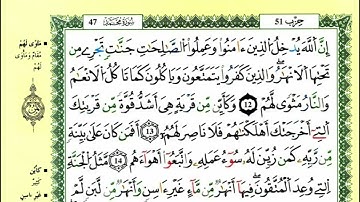 47 سُورَةُ مُحَمَّدٍ حِزْب 51
إِنَّ اللَّهَ يُدْخِلُ الَّذِينَ ءَامَنُوا وَعَمِلُوا الصَّٰلِحَٰتِ جَنَّٰتٍ تَجْرِي مِن
تَحْتِهَا الْأَنْهَٰرُ وَالَّذِينَ كَفَرُوا يَتَمَتَّعُونَ وَيَأْكُلُونَ كَمَا تَأْكُلُ الْأَنْعَٰمُ
وَالنَّارُ مَثْوًى لَّهُمْ 12 وَكَأَيِّن مِّن قَرْيَةٍ هِيَ أَشَدُّ قُوَّةً مِّن قَرْيَتِكَ
الَّتِي أَخْرَجَتْكَ أَهْلَكْنَٰهُمْ فَلَا نَاصِرَ لَهُمْ 13 أَفَمَن كَانَ عَلَىٰ بَيِّنَةٍ
مِّن رَّبِّهِ كَمَن زُيِّنَ لَهُ سُوءُ عَمَلِهِ وَاتَّبَعُوا أَهْوَاءَهُم 14 مَّثَلُ الْجَنَّةِ
الَّتِي وُعِدَ الْمُتَّقُونَ فِيهَا أَنْهَٰرٌ مِّن مَّاءٍ غَيْرِ ءَاسِنٍ وَأَنْهَٰرٌ مِّن لَّبَنٍ لَّمْ
مَثْوًى لَهُمْ
مُقَامٌ وَمَأْوًى
لَهُمْ
كَأَيِّن
كَثِيرٌ
غَيْرِ ءَاسِنٍ